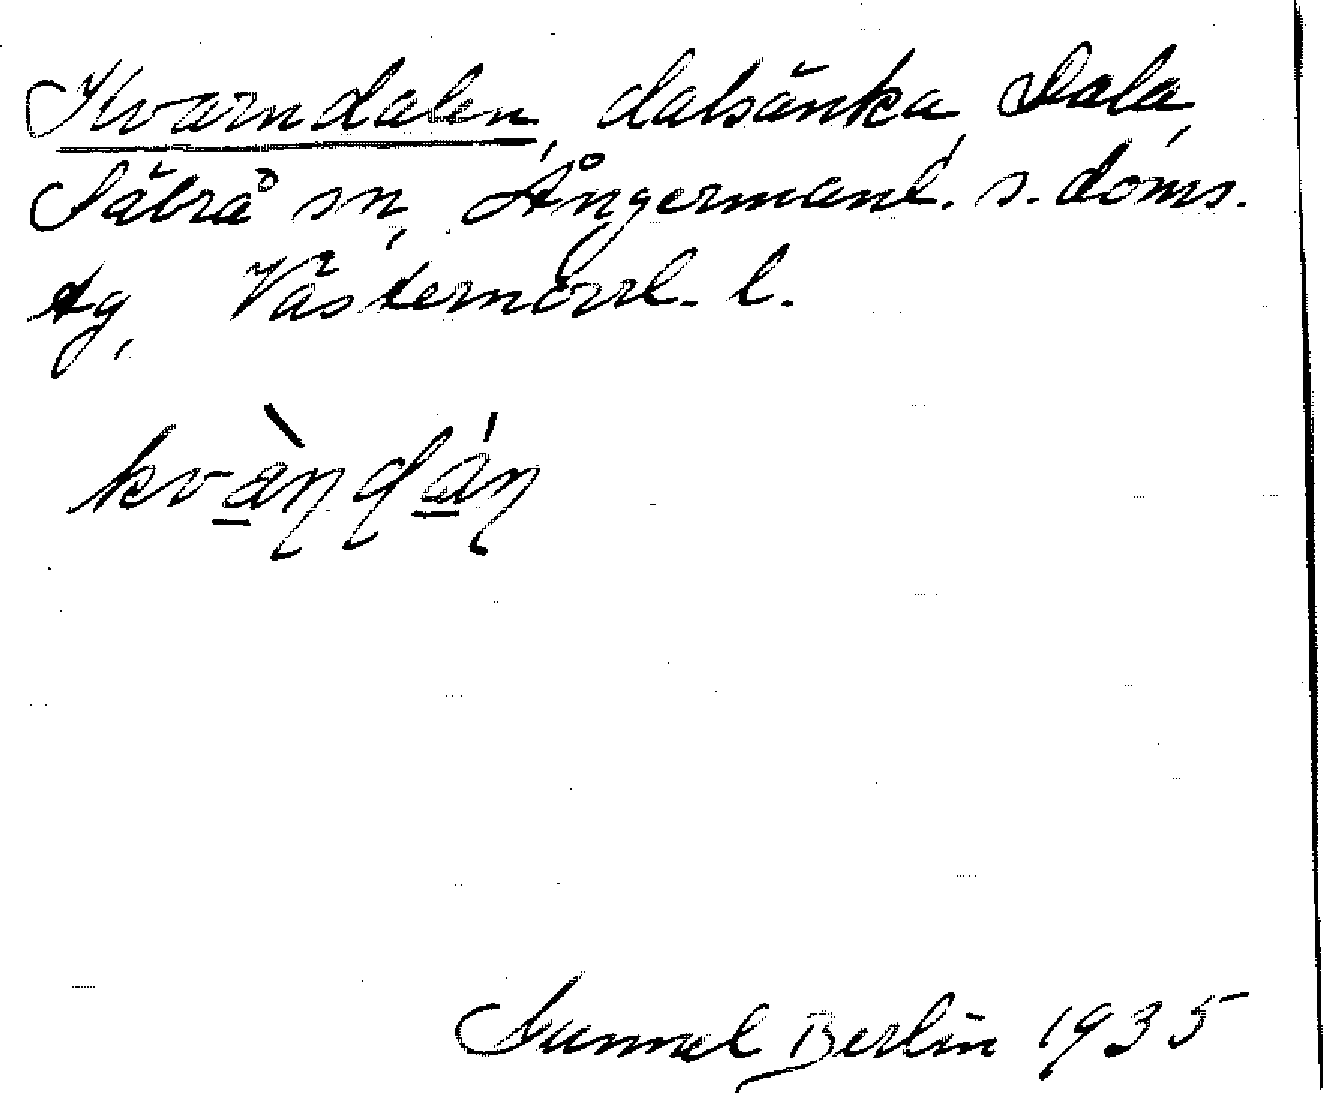 Kvarndalen, dalsänka, Dala,
Säbrå sn, Ångermanl. s. doms.
tg, Västernorrl. l.
kvàṇḍáṇ
Sunnel Berlin 1935